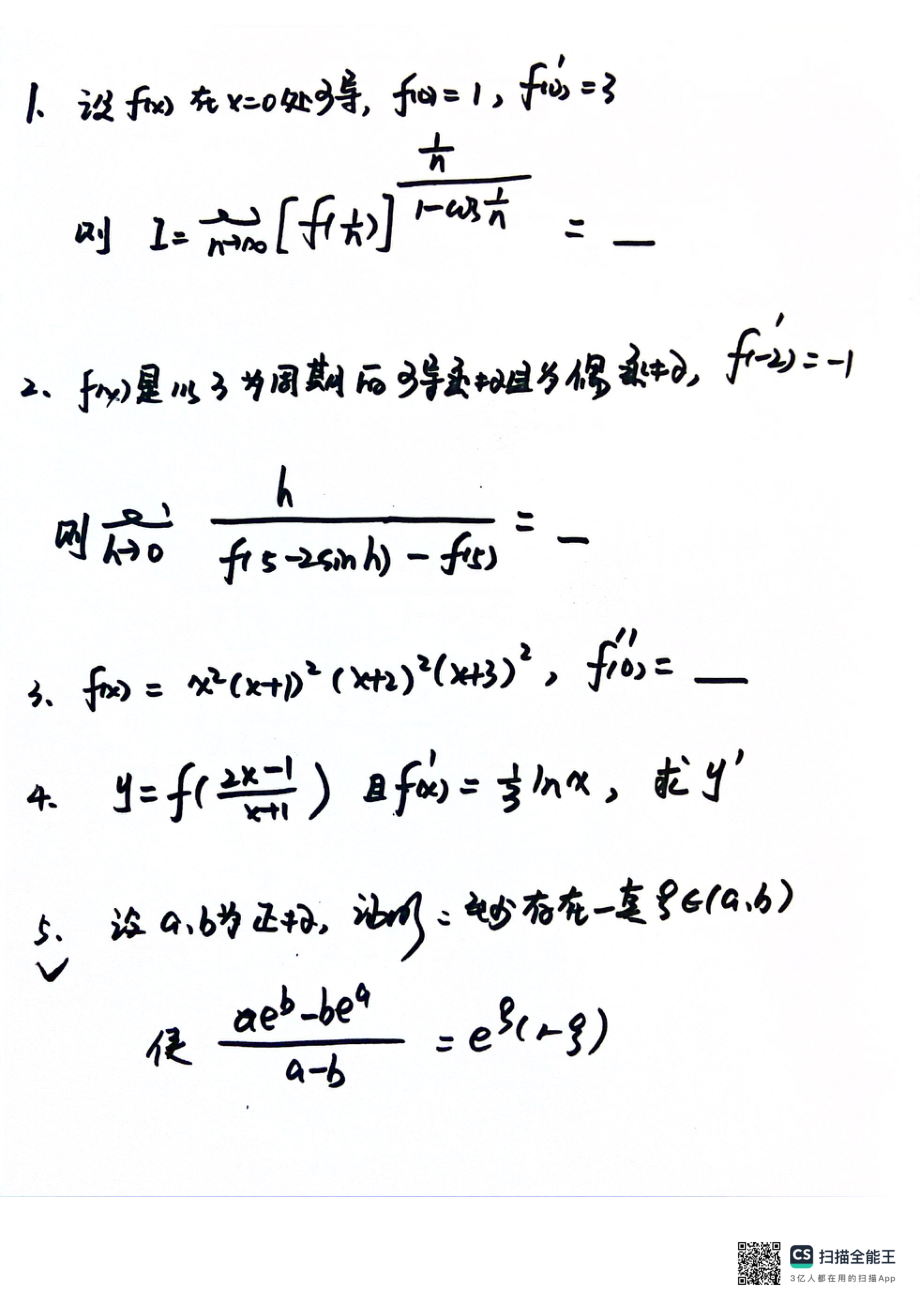 1、设 f(x) 在 x=0 处可导, f(0)=1, f'(0)=3
则 I=lim_{n→∞} [f(1/n)]^{(1/n)/(1-cos 1/n)} = __
2、f(x)是以3为周期的可导函数且为偶函数, f'(-2)=-1
则 lim_{h→0} h/(f(5-2sinh)-f(5)) = __
3、f(x) = x²(x+1)²(x+2)²(x+3)², f''(0)= __
4、y=f((2x-1)/(x+1)) 且f'(x)=1/3 lnx, 求y'
5、设a、b为正数, 证明:至少存在一点ξ∈(a,b)
使 (ae^b-be^a)/(a-b) = e^ξ(1-ξ)
CS 扫描全能王
3亿人都在用的扫描App